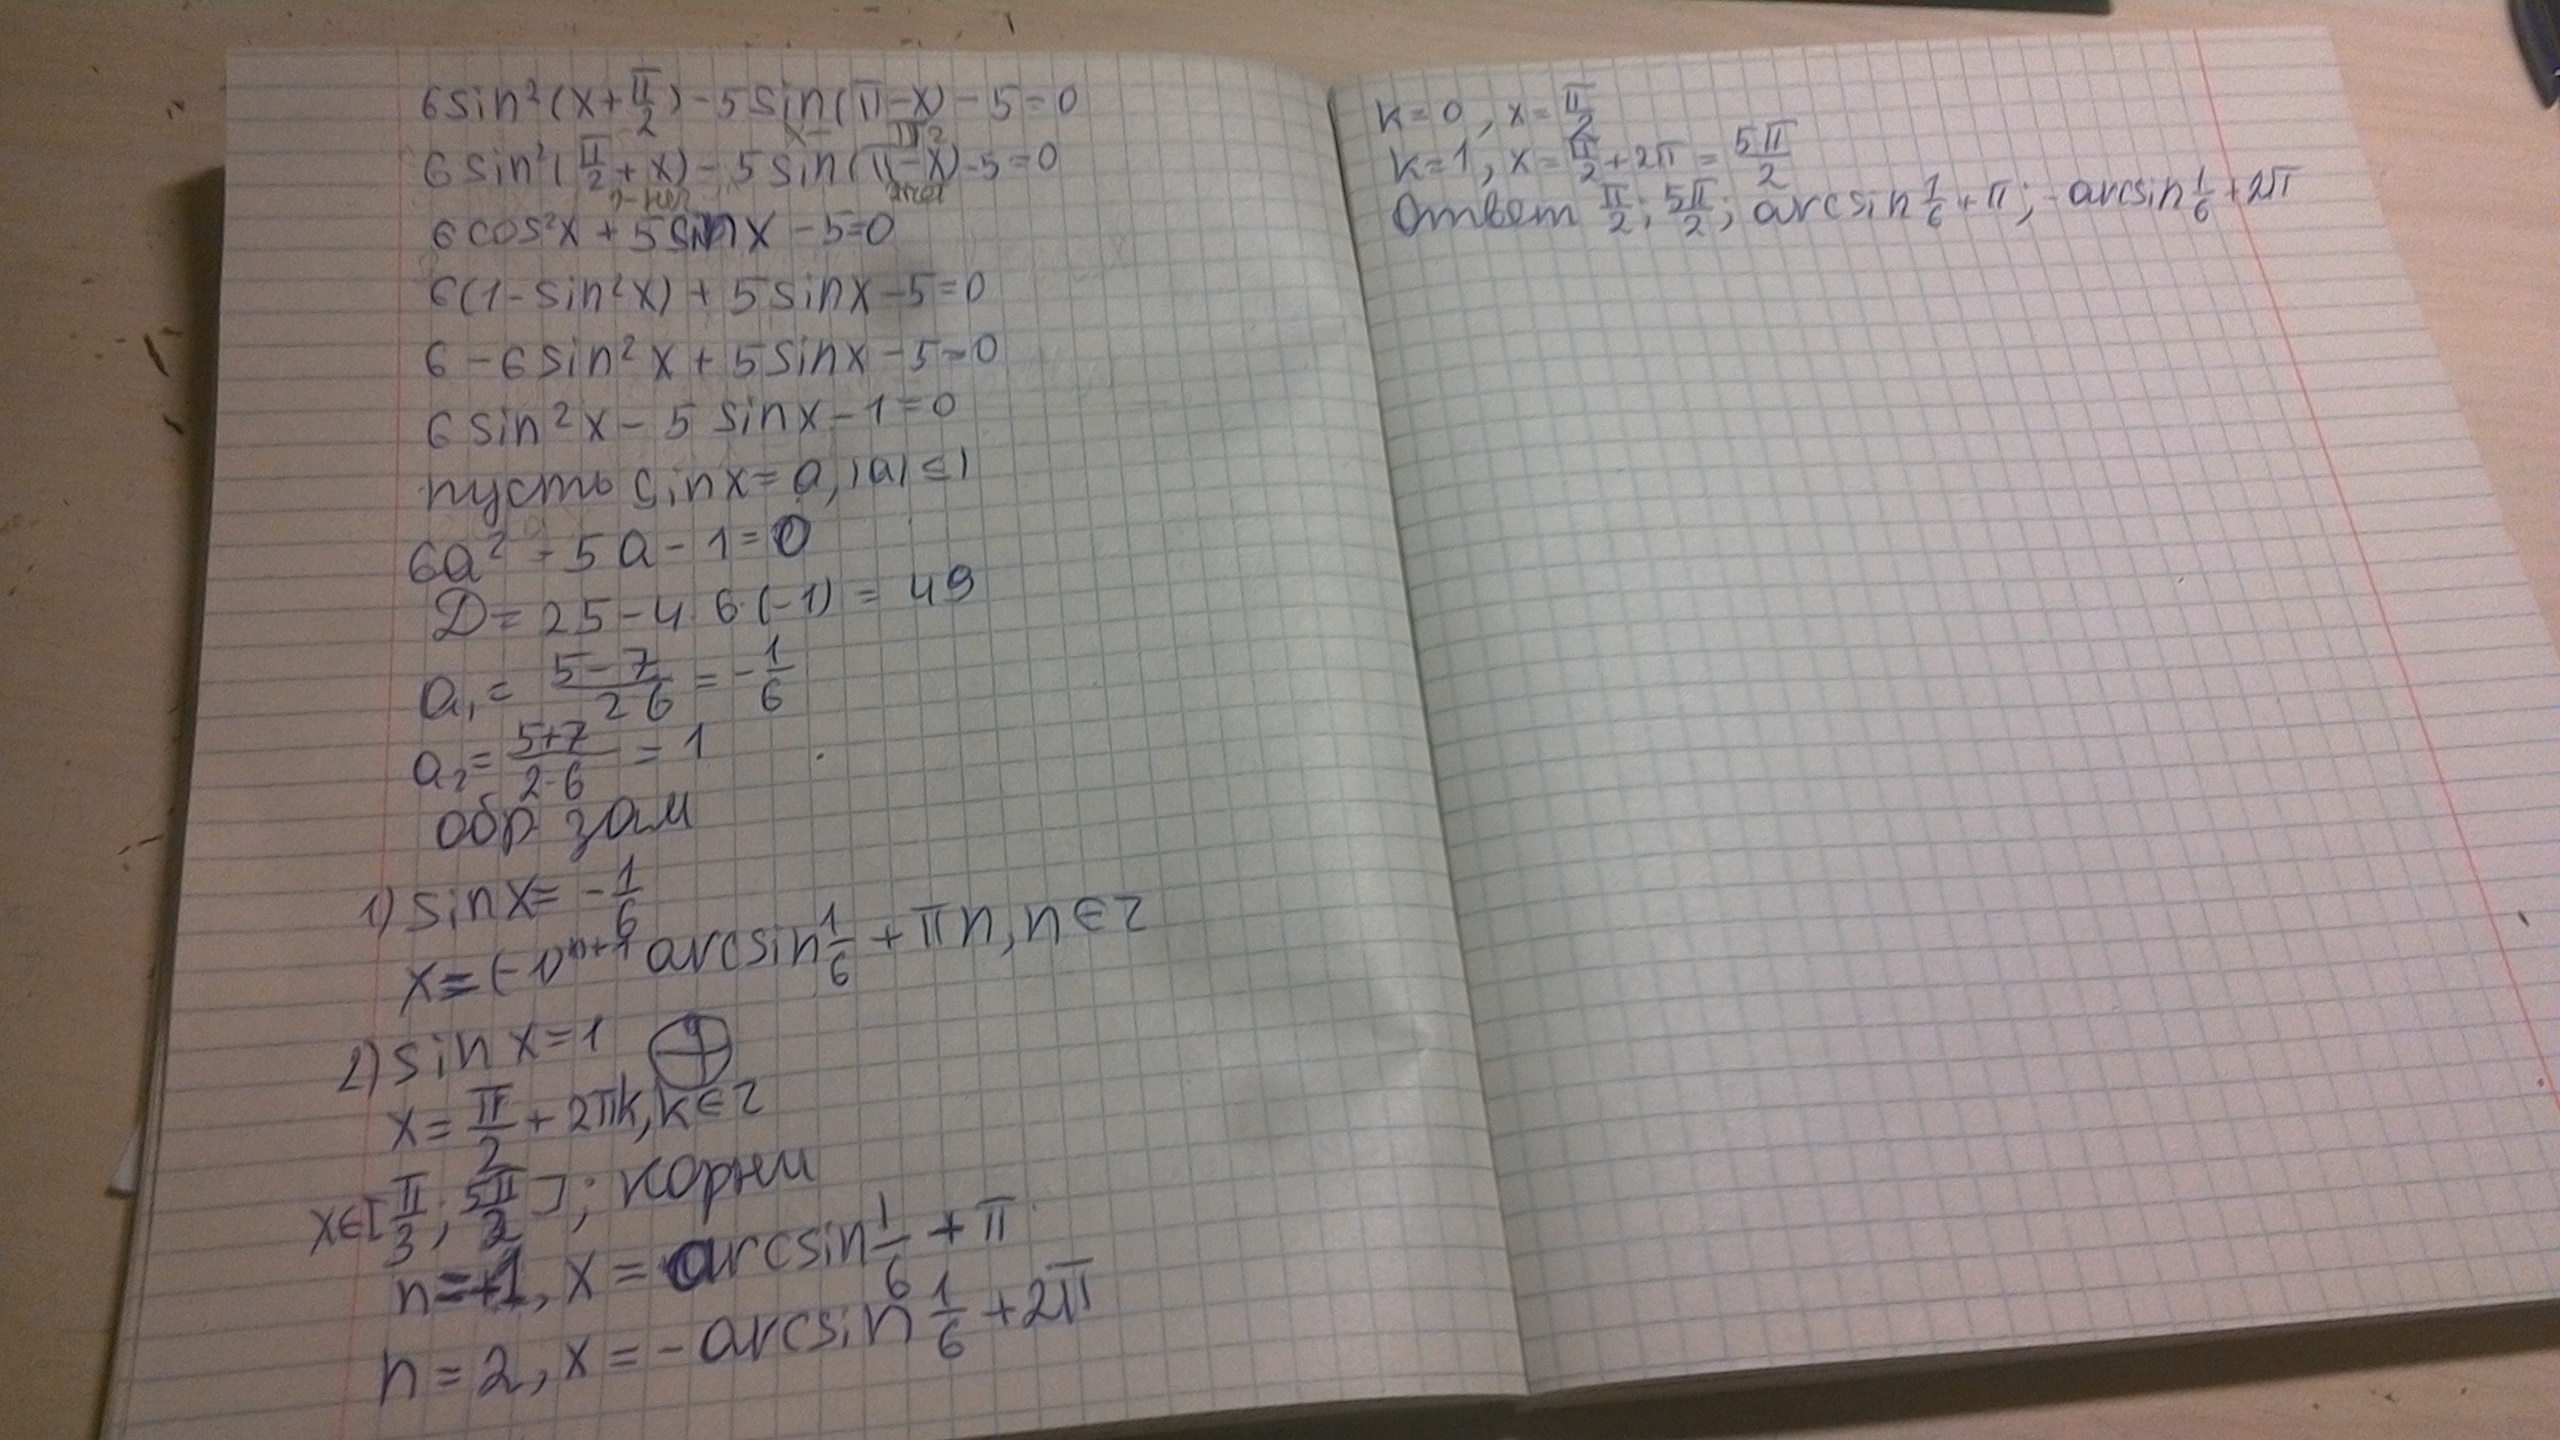 6sin²(x+π/2)-5sin(π-x)-5=0
6sin²(π/2+x)-5sin(π-x)-5=0
6cos²x+5sinx-5=0
6(1-sin²x)+5sinx-5=0
6-6sin²x+5sinx-5=0
6sin²x-5sinx-1=0
пусть sinx=a, |a|≤1
6a²-5a-1=0
D=25-4·6·(-1)=49
a₁=(5-7)/(2·6)=-1/6
a₂=(5+7)/(2·6)=1
обр зам
1) sinx=-1/6
x=(-1)ⁿ⁺¹arcsin1/6+πn, n∈z
2) sinx=1
x=π/2+2πk, k∈z
x∈[π/3; 5π/2]; корни
n=1, x=arcsin1/6+π
n=2, x=-arcsin1/6+2π
k=0, x=π/2
k=1, x=π/2+2π=5π/2
Ответ π/2; 5π/2; arcsin1/6+π; -arcsin1/6+2π